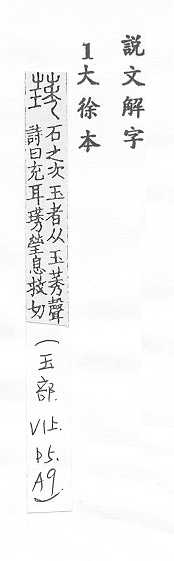 説文解字
1大徐本
璓
石之次玉者从玉莠聲
詩曰充耳璓瑩息救切
(玉部. V1上. P5. A9)